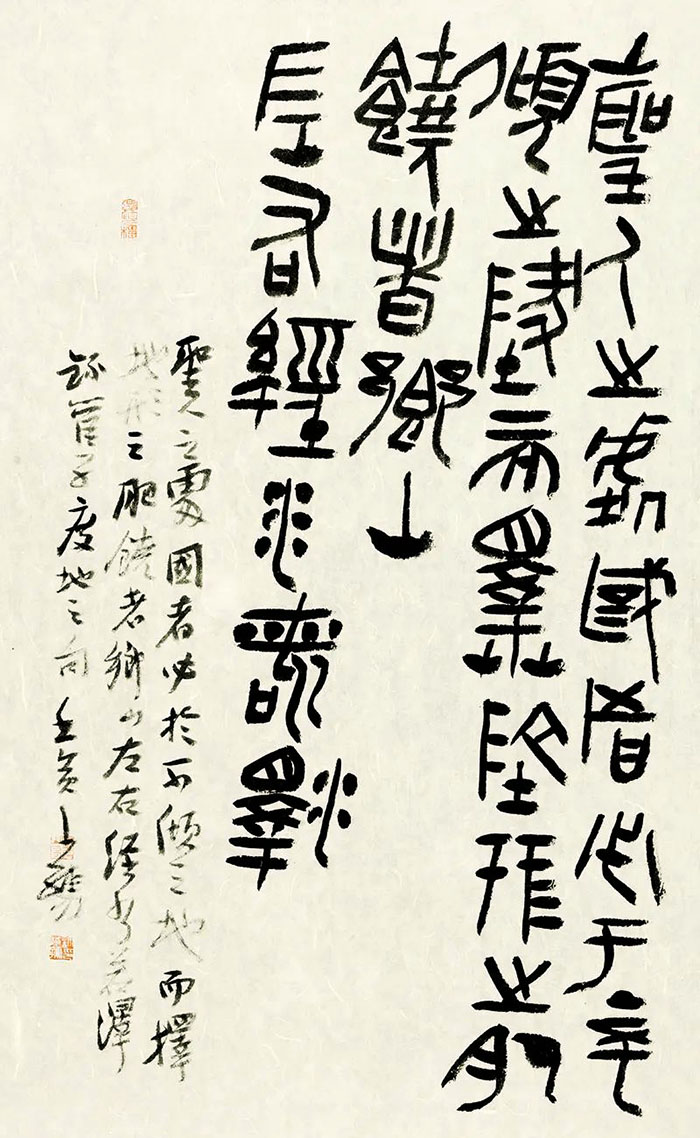 聖人之處國者必于不
傾之地而擇地形之肥
饒者鄉山
左右經水若澤
聖人之處國者必於不傾之地而擇
地形之肥饒者鄉山左右經水若澤
錄管子度地之句壬寅